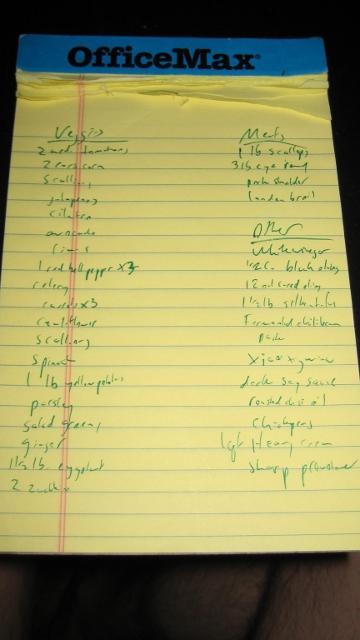 OfficeMax
Veggies
2 med tomatoes
2 ears corn
Scallions
jalapenos
cilantro
avocado
limes
1 red bell pepper x3
celery
carrots x3
Cauliflower
Scallions
Spinach
1 lb yellow potatoes
parsley
Salad greens
ginger
1 1/2 lb. eggplant
2 zucchini
Meats
1 lb scallops
3 lb eye round
pork shoulder
London broil
Other
White vinegar
1/2 C. black olives
12 oil cured olives
1 1/2 lb silken tofu
Fermented chili bean
paste
Xiaoxing wine
dark soy sauce
roasted chili oil
Chickpeas
1 qt Heavy cream
sharp provolone